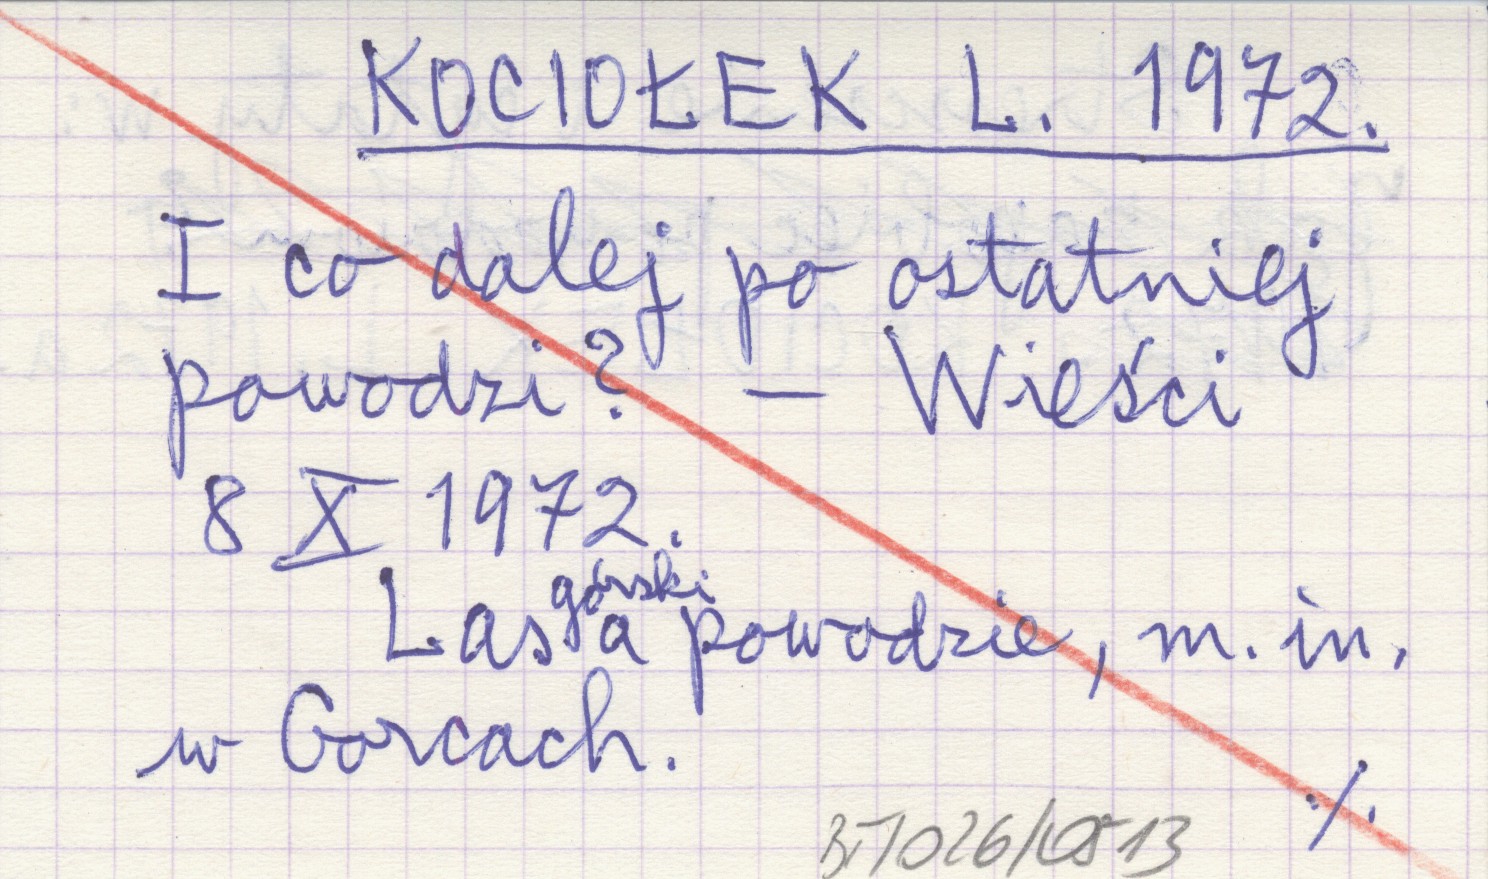 KOCIOŁEK L. 1972.
I co dalej po ostatniej
powodzi? — Wieści
8 X 1972.
Las górski a powodzie, m. in.
w Gorcach.
./.